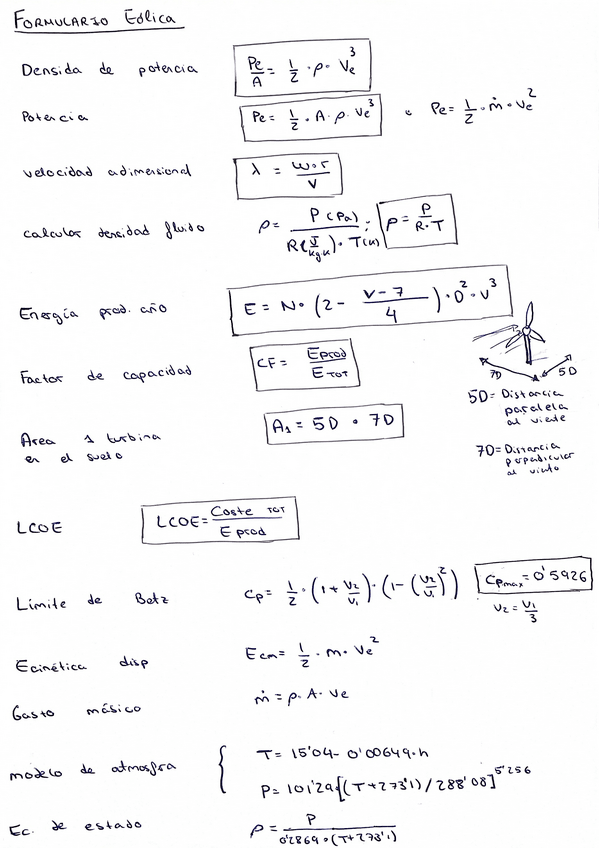 FORMULARIO Eólica
Densida de potencia Pe/A = 1/2 · ρ · Ve^3
Potencia Pe = 1/2 · A · ρ · Ve^3 o Pe = 1/2 · ṁ · Ve^2
velocidad adimersional λ = ω·r/V
calcular densidad fluido ρ = P(Pa)/R(J/kg K) · T(K) ; ρ = P/R·T
Energía prod. año E = N · (2 - V-7/4) · D^2 · V^3
Factor de capacidad CF = Eprod/E TOT
7D 5D
5D = Distancia
paralela
al viento
Area 1 turbina A1 = 5D · 7D
en el suelo
7D = Distancia
perpendicular
al viento
LCOE LCOE = Coste TOT/E prod
Límite de Betz Cp = 1/2 · (1 + V2/V1) · (1 - (V2/V1)^2) Cpmax = 0'5926
V2 = V1/3
Ecinética disp Ecm = 1/2 · m · Ve^2
Gasto másico ṁ = ρ · A · Ve
modelo de atmosfra { T = 15'04 - 0'00649·h
P = 101'29[(T+273'1)/288'08]^5'256
Ec. de estado ρ = P/0'2869·(T+273'1)